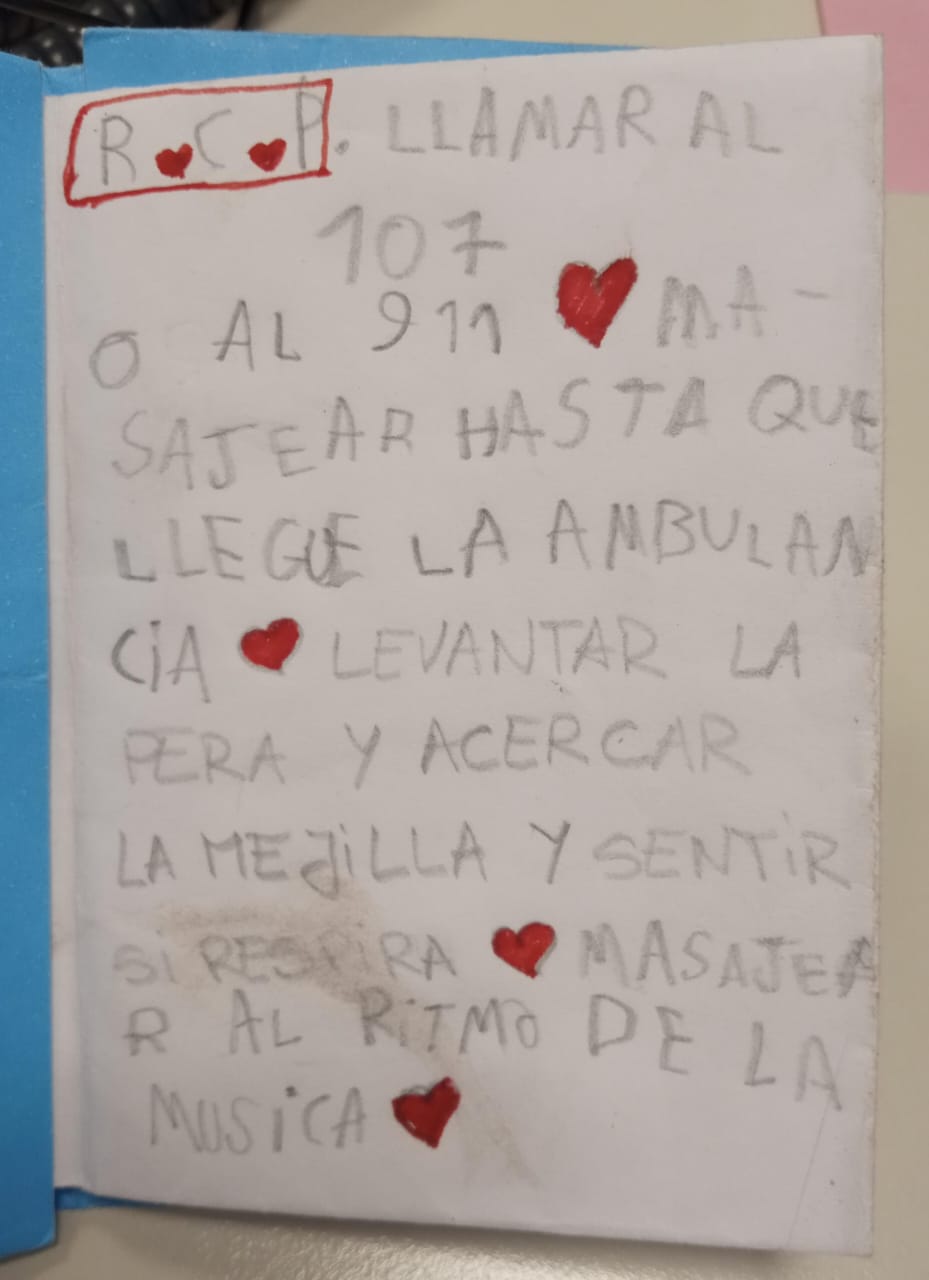 R♥C♥P. LLAMAR AL
107
O AL 911 ♥ MA-
SAJEAR HASTA QUE
LLEGUE LA AMBULAN
CiA ♥ LEVANTAR LA
PERA Y ACERCAR
LA MEJiLLA Y SENTiR
Si RESPiRA ♥ MASAJEA
R AL RiTMO DE LA
MUSiCA ♥